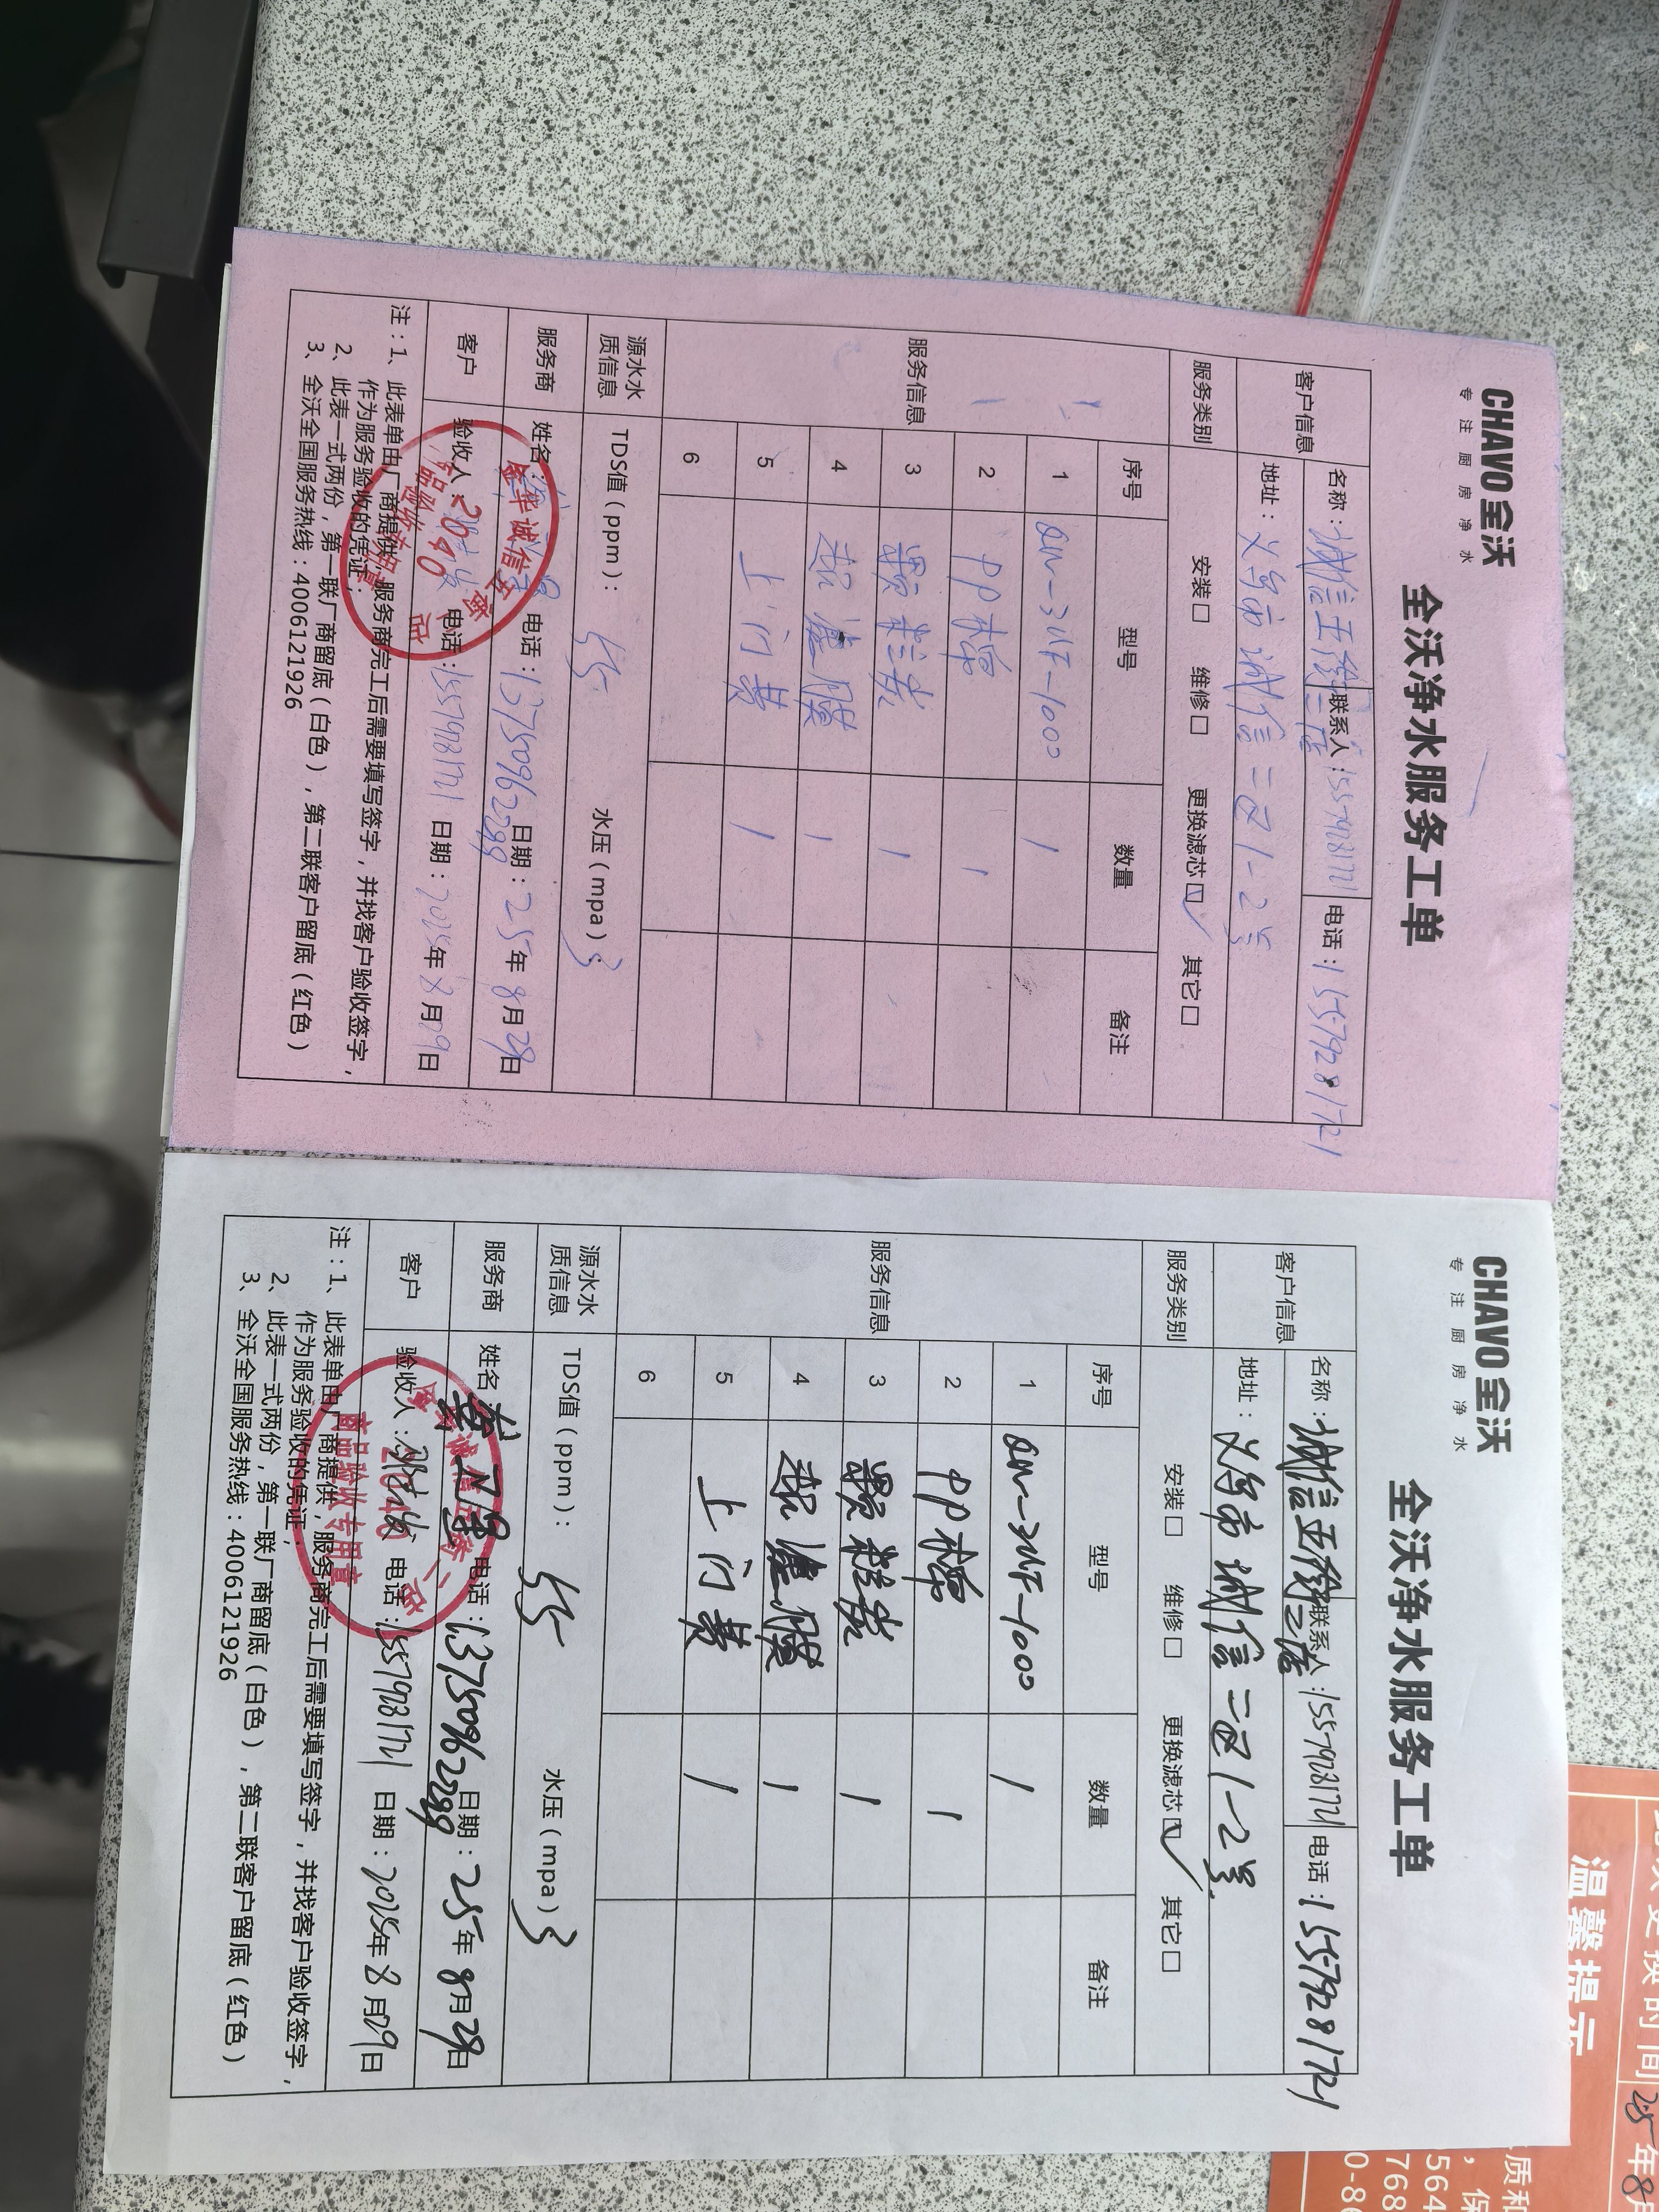 CHAVO全沃
专注厨房净水
全沃净水服务工单
客户信息 名称：诚信五街二店 联系人：15579281721 电话：15579281721
地址：义乌市诚信二区1-2号
服务类别 安装□ 维修□ 更换滤芯☑ 其它□
服务信息 序号 型号 数量 备注
1 QW-3UF-1000 1
2 PP棉 1
3 颗粒炭 1
4 超滤膜 1
5 上门费 1
6
源水水质信息 TDS值（ppm）：45 水压（mpa）3
服务商 姓名： 电话：13750962299 日期：25年8月29日
客户 验收人： 电话：15579281721 日期：2025年8月29日
2040
注：1、此表单由厂商提供，服务商完工后需要填写签字，并找客户验收签字，
作为服务验收的凭证；
2、此表一式两份，第一联厂商留底（白色），第二联客户留底（红色）
3、全沃全国服务热线：4006121926
CHAVO全沃
专注厨房净水
全沃净水服务工单
客户信息 名称：诚信五街二店 联系人：15579281721 电话：15579281721
地址：义乌市诚信二区1-2号
服务类别 安装□ 维修□ 更换滤芯☑ 其它□
服务信息 序号 型号 数量 备注
1 QW-3UF-1000 1
2 PP棉 1
3 颗粒炭 1
4 超滤膜 1
5 上门费 1
6
源水水质信息 TDS值（ppm）：45 水压（mpa）3
服务商 姓名： 电话：13750962299 日期：25年8月29日
客户 验收人： 电话：15579281721 日期：2025年8月29日
2040
商品验收专用章
注：1、此表单由厂商提供，服务商完工后需要填写签字，并找客户验收签字，
作为服务验收的凭证；
2、此表一式两份，第一联厂商留底（白色），第二联客户留底（红色）
3、全沃全国服务热线：4006121926
温馨提示
更换时间 25年8